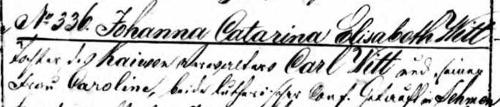 No 336. Johanna Catarina Elisabeth Witt
Tochter des Verwalters Carl Witt und seiner
Frau Caroline, beide lutherischer Conf. Getauft in